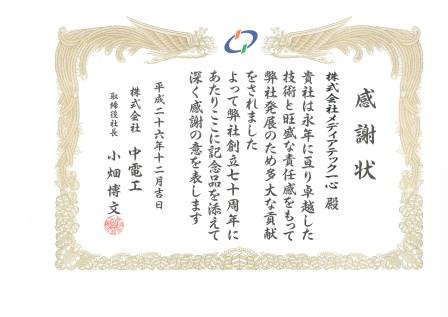 感謝状
株式会社メディアテック一心 殿
貴社は永年に亘り卓越した
技術と旺盛な責任感をもって
弊社発展のため多大な貢献
をされました
よって弊社創立七十周年に
あたりここに記念品を添えて
深く感謝の意を表します
平成二十六年十二月吉日
株式会社 中電工
取締役社長 小畑博文